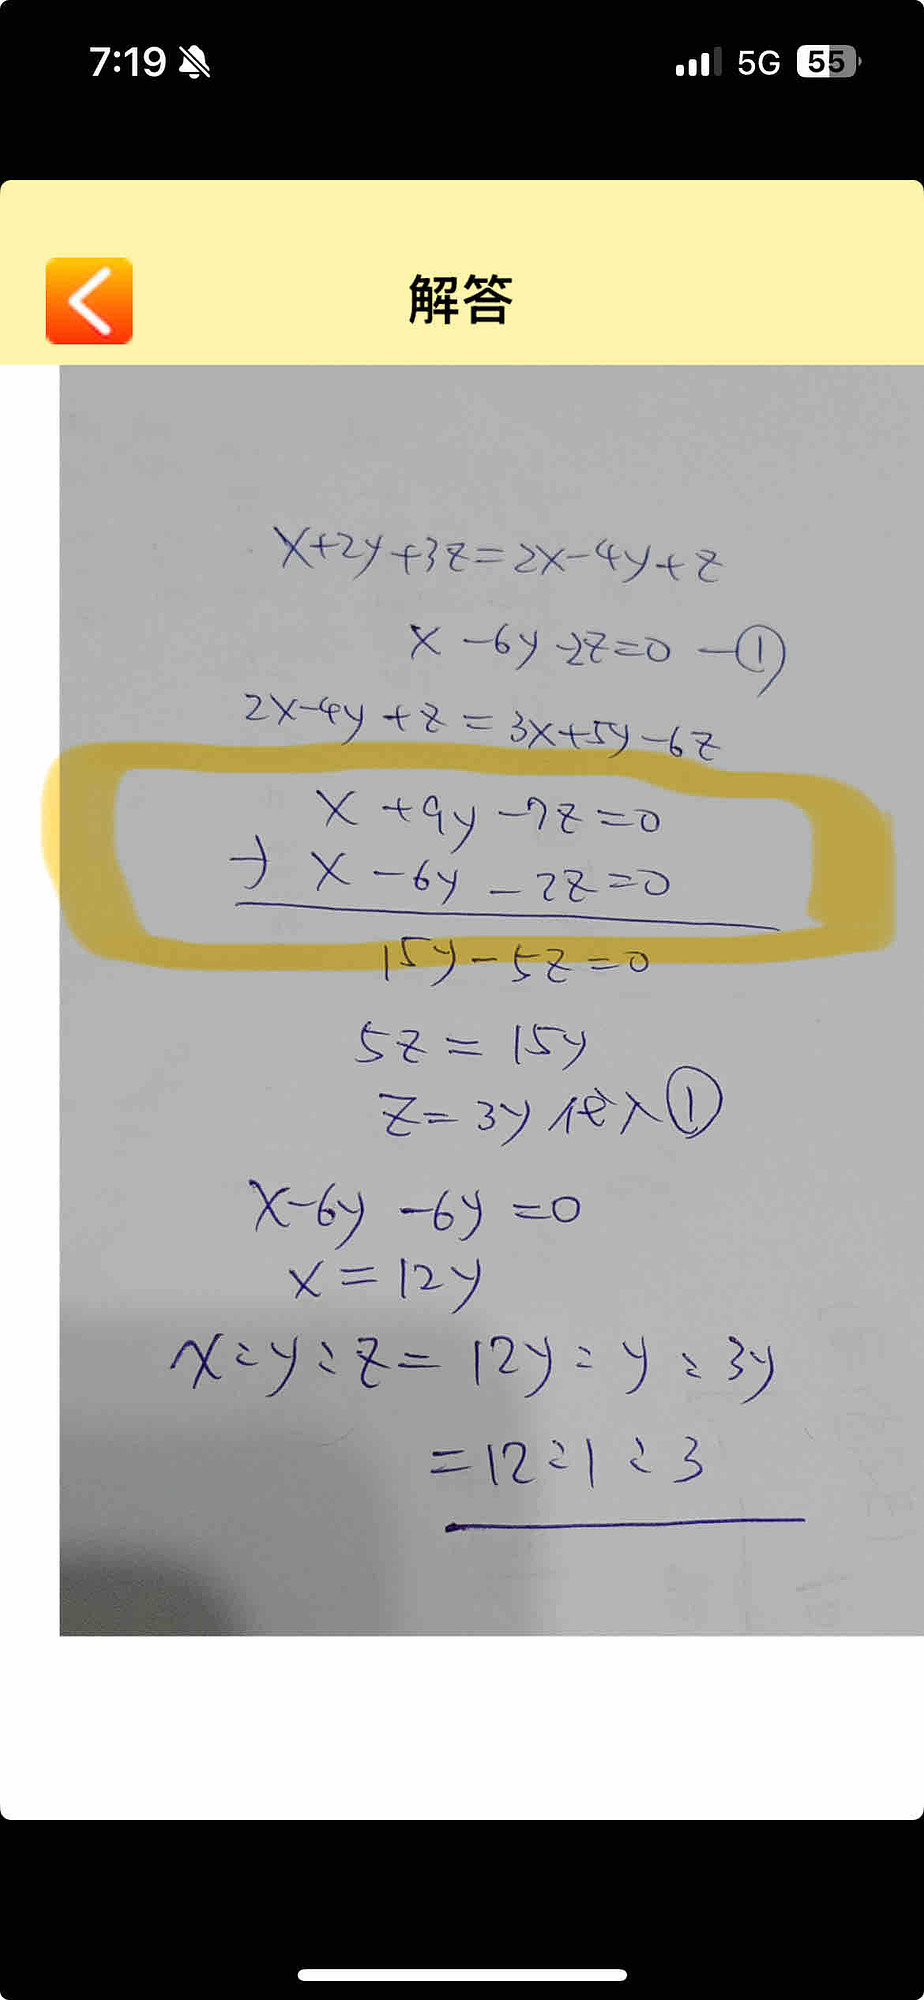 7:19 5G 55
解答
x+2y+3z=2x-4y+z
x-6y-2z=0 —①
2x-4y+z=3x+5y-6z
x+9y-7z=0
+) x-6y-2z=0
15y-5z=0
5z=15y
z=3y 代入①
x-6y-6y=0
x=12y
x:y:z=12y:y:3y
=12:1:3